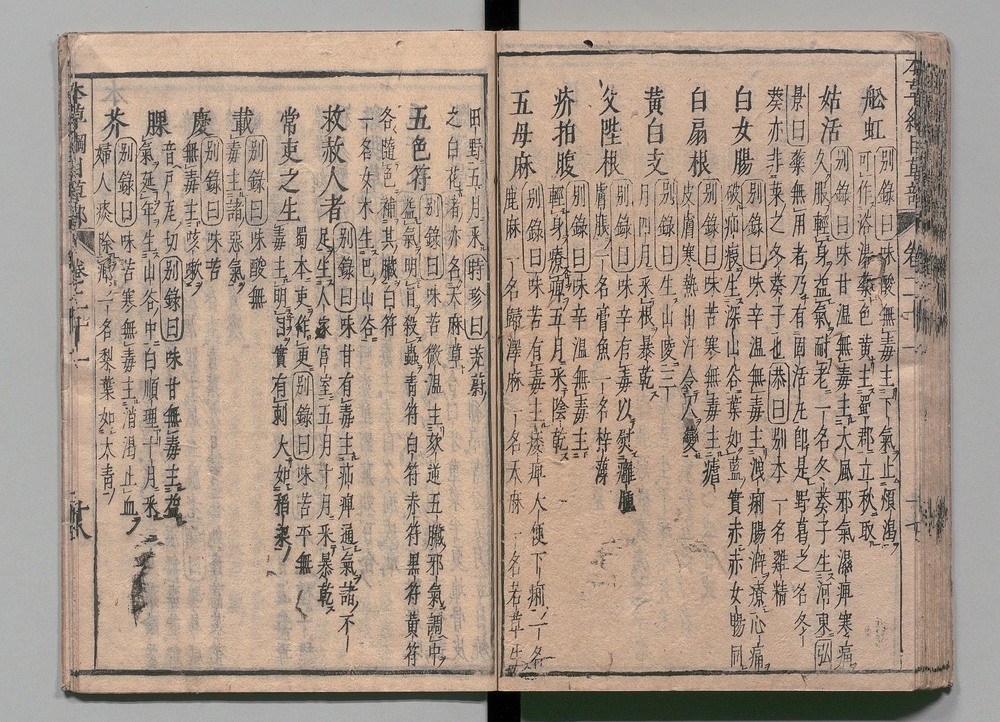 本草綱目草部
舩虹
别錄曰味酸無毒主下氣止煩滿
可作浴湯藥色黄生蜀郡立秋取
姑活
别錄曰味甘温無毒主大風邪氣濕痺寒痛
久服輕身益氣耐老一名冬葵子生河東弘
景曰藥無用者乃有固活丸卽是野葛之名冬
葵亦非菜之冬葵子也恭曰别本一名雞精
白女腸
别錄曰味辛温無毒主洩痢腸澼療心痛
破疝瘕生深山谷葉如藍實赤赤女腸同
白扇根
别錄曰味苦寒無毒主瘧
皮膚寒熱出汗令人變
黄白支
别錄曰生山陵三
月四月采根暴乾
父陛根
别錄曰味辛有毒以熨癰腫
膚脹一名膏魚一名梓藻
疥拍腹
别錄曰味辛温無毒主
輕身療痺五月采陰乾
五母麻
别錄曰味苦有毒主痿痺大便下痢一名
鹿麻一名歸澤麻一名天麻一名若草生
田野五月采時珍曰茺蔚
之白花者亦名天麻草
五色符
别錄曰味苦微温主欬逆五臟邪氣調中
益氣明目殺蟲青符白符赤符黒符黄符
各隨色補其臟白符
一名女木生巴山谷
救赦人者
别錄曰味甘有毒主疝痺通氣諸不
足生人家宮室五月十月采暴乾
常吏之生
蜀本吏作更别錄曰味苦平無
毒主明目實有刺大如稻米
載
别錄曰味酸無
毒主諸惡氣
慶
别錄曰味苦
無毒主咳嗽
腂
音户瓦切别錄曰味甘無毒主益
氣延年生山谷中白順理十月采
芥
别錄曰味苦寒無毒主消渴止血
婦人疾除痺一名梨葉如大青
本草綱目草部
卷二十一
十八